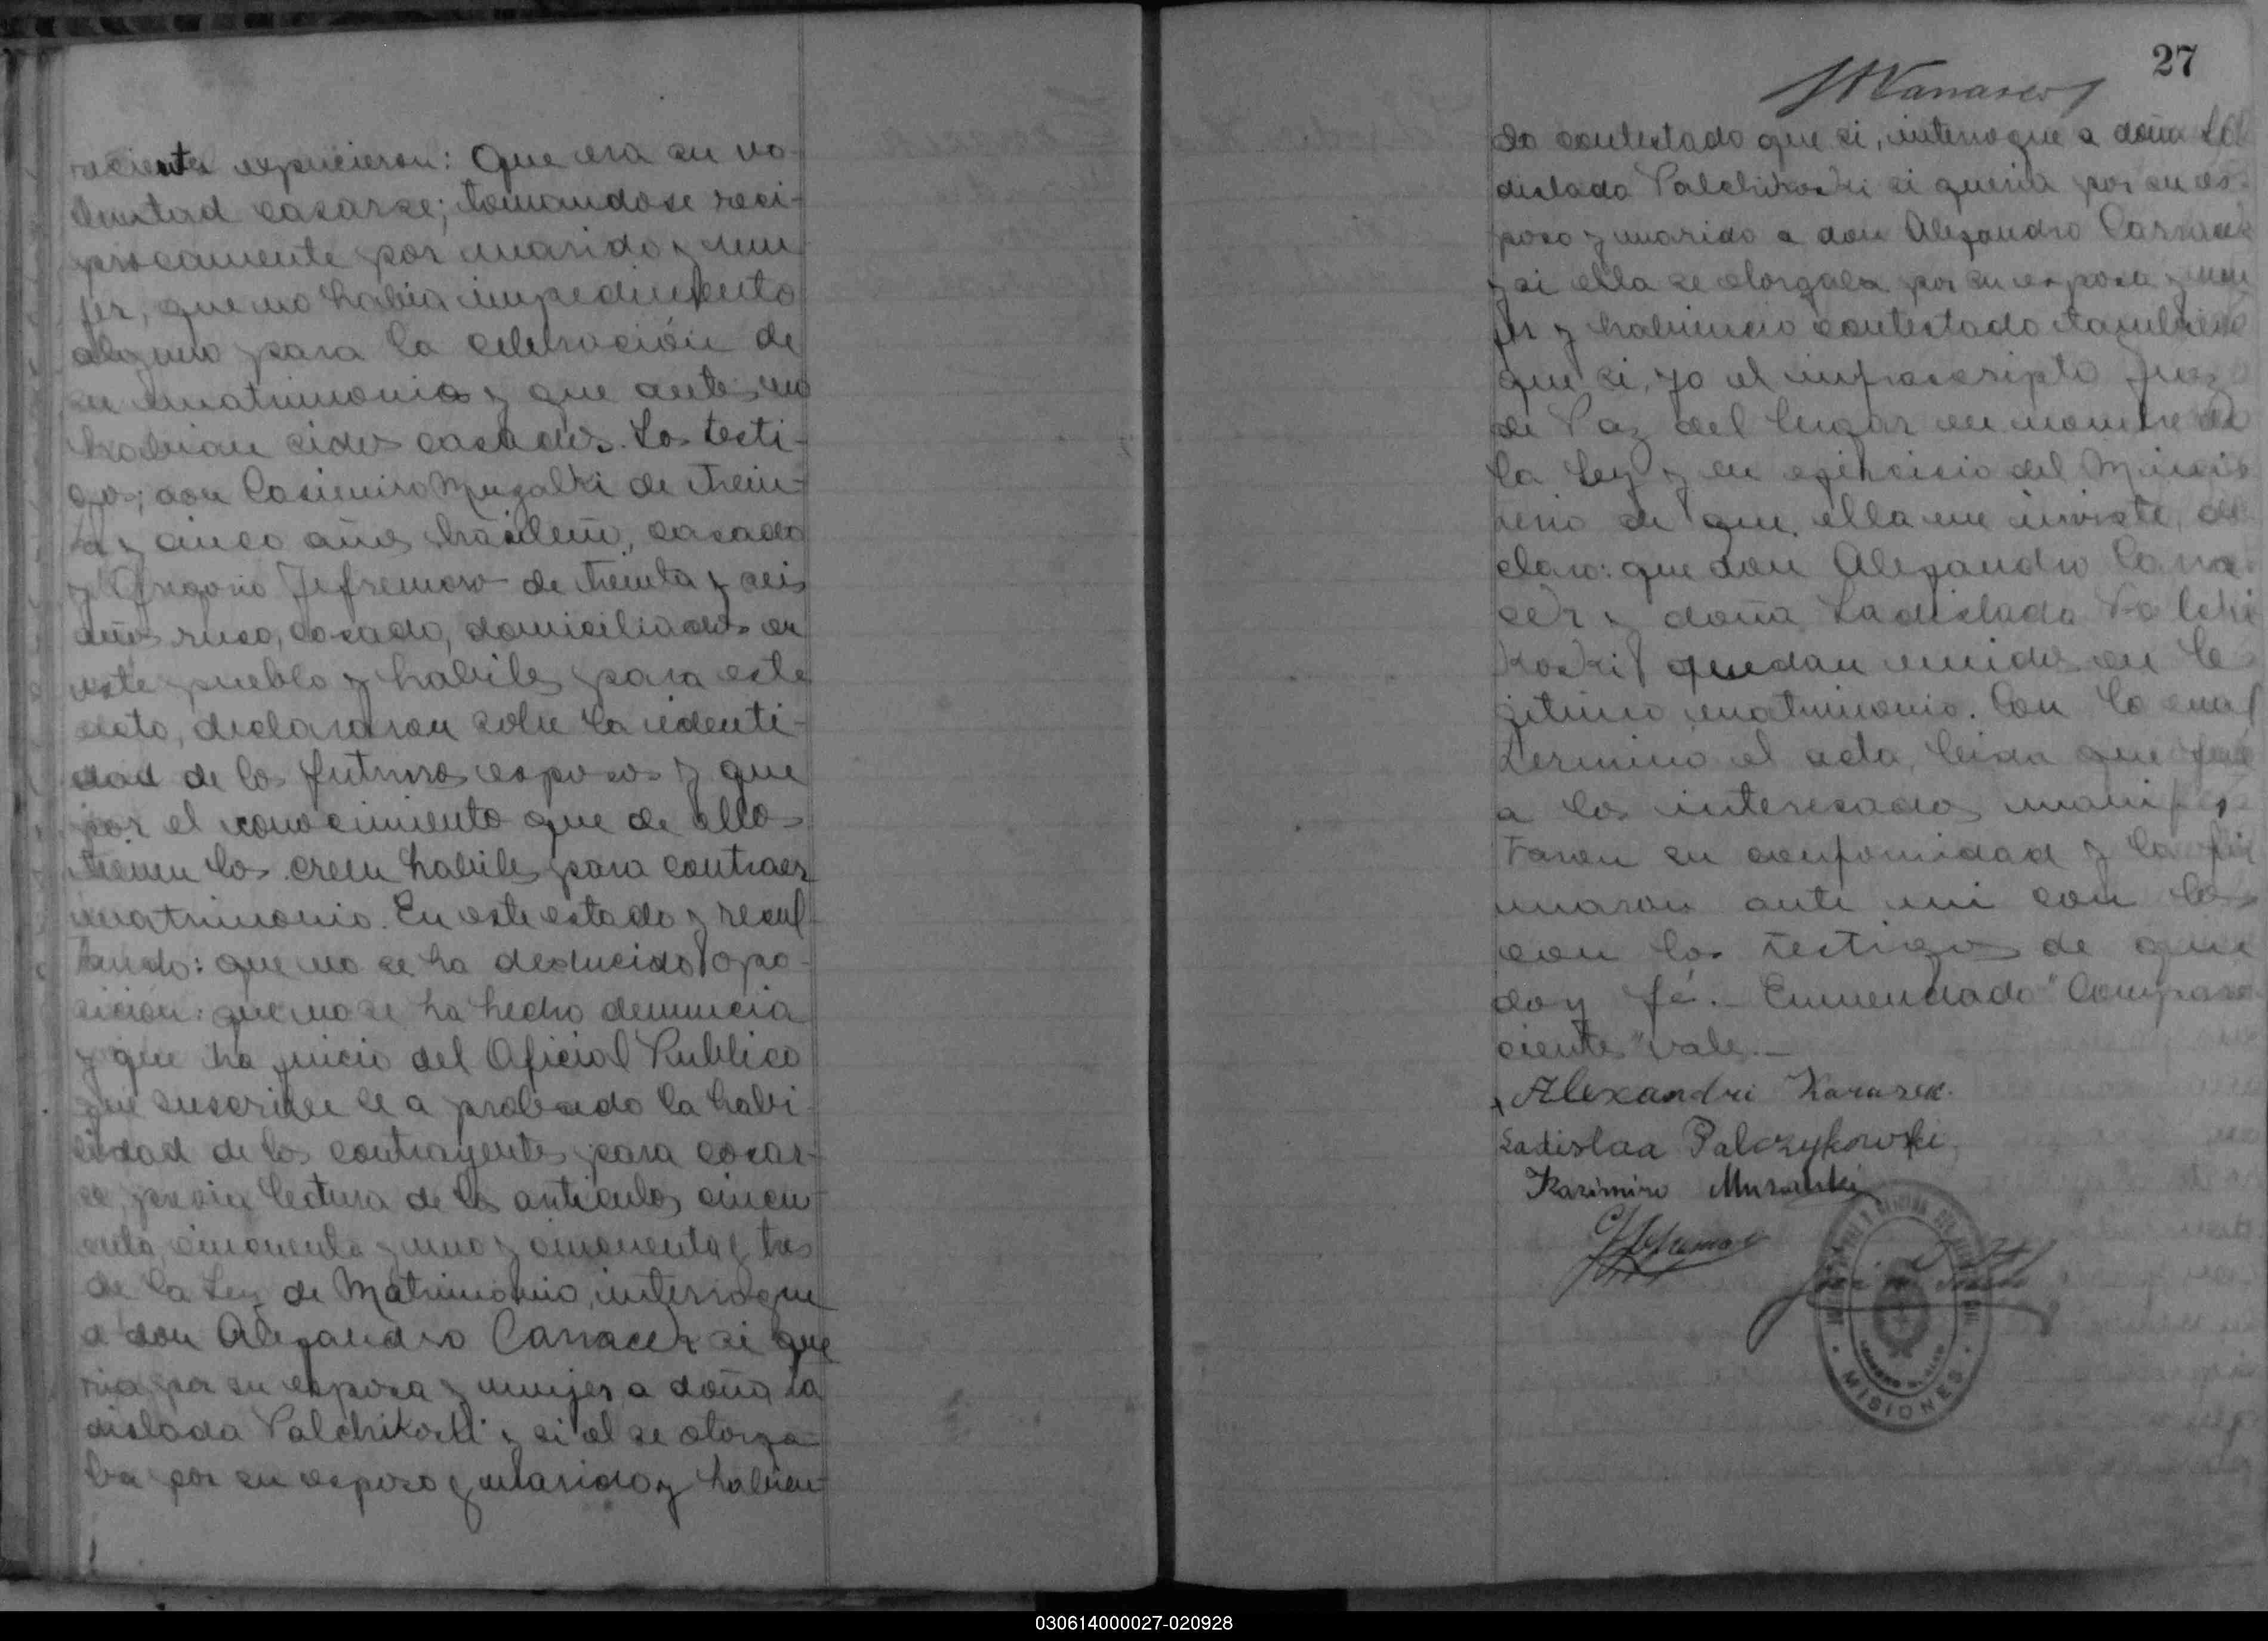 recientes expusieron: Que era su vo-
luntad casarse; tomandose reci-
procamente por marido y mu
jer, que no habia impedimento
alguno para la celebración de
su matrimonio y que antes no
habian sidos casados. Los testi-
gos; don Casimiro Muzalki de trein-
ta y cinco años brasileño, casado
y Gregorio Jefremow de treinta y seis
años ruso, casado, domiciliados en
este pueblo y habiles para este
acto, declararon sobre la identi-
dad de los futuros esposos y que
por el conocimiento que de ellos
tienen los creen habiles para contraer
matrimonio. En este estado y resul-
tando: que no se ha deducido opo-
sición: que no se ha hecho denuncia
y que ha juicio del Oficial Publico
que suscribe se a probado la habi-
lidad de los contrayentes para casar-
se, previa lectura de los articulos cincu
enta, cincuenta y uno y cincuenta y tres
de la Ley de Matrimonio, interrogue
a don Alejandro Carracer si que
ria por su esposa y mujer a doña La
dislada Palchikoski y si el se otorga-
ba por su esposo y marido y habien-
27
do contestado que si, interrogue a doña La
dislada Palchikoski si queria por su es-
poso y marido a don Alejandro Carracer
y si ella se otorgaba por su esposa y mu
jer y habiendo contestado tambien
que si, yo el infrascripto Juez
de Paz del lugar en nombre de
la Ley y en ejercicio del Minis
terio de que ella me inviste, de
claro: que don Alejandro Carra
cer y doña Ladislada Palchi
koski quedan unidos en le
gitimo matrimonio. Con lo cual
termino el acta, leida que fue
a los interesados manifes
taron su conformidad y la fir
maron ante mi con los
con los testigos de que
doy fé.- Enmendado "Compare
ciente" vale.-
Alexandri Karasek.
Ladislaa Palczykowski
Kazimiro Muzalski
GJefremow
MISIONES
030614000027-020928